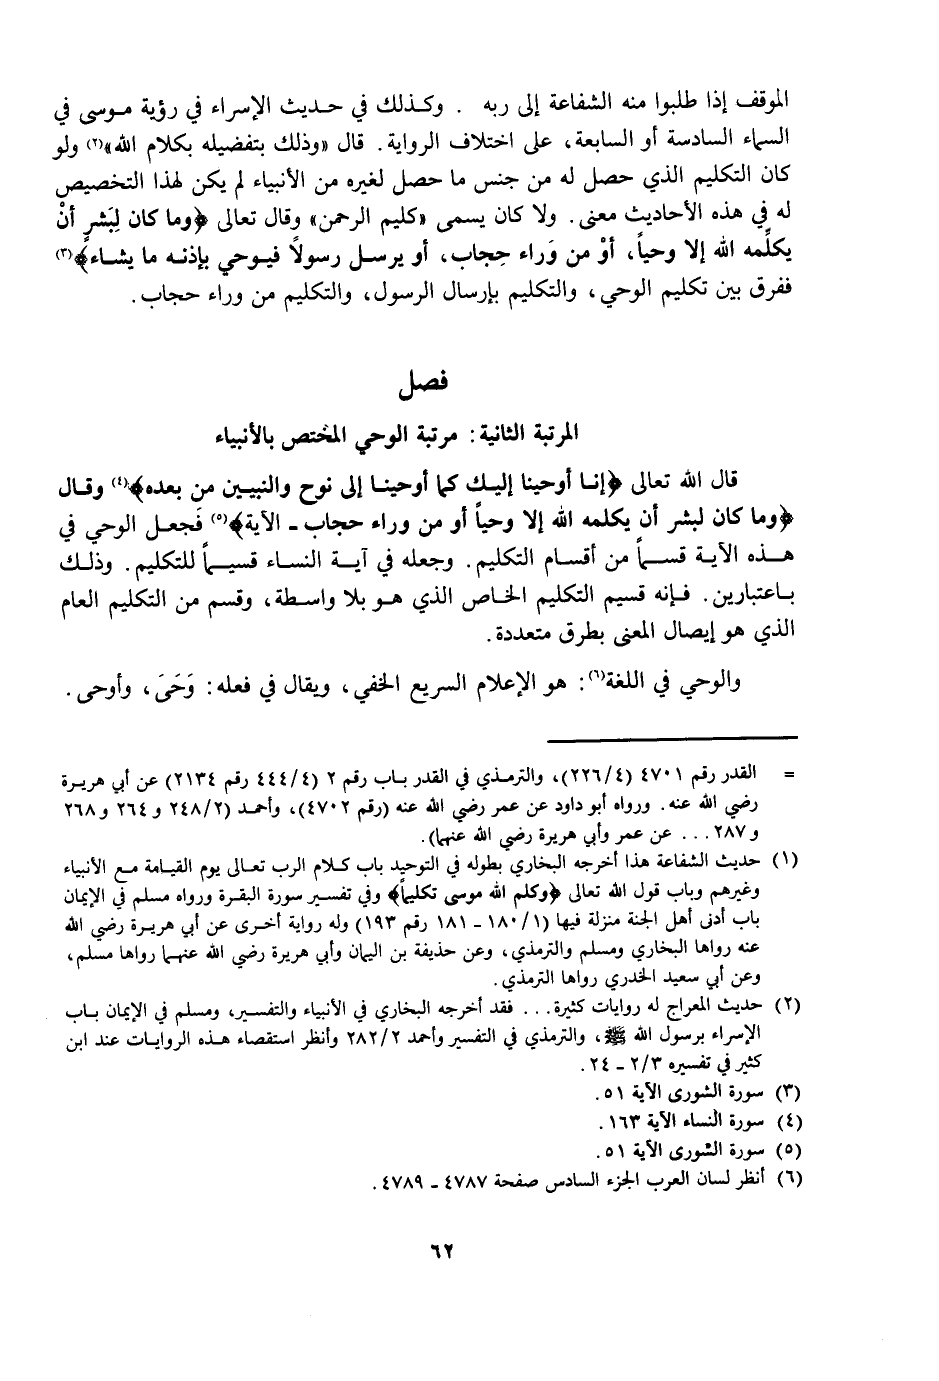 الموقف إذا طلبوا منه الشفاعة إلى ربه . وكذلك في حديث الإسراء في رؤية موسى في
السماء السادسة أو السابعة، على اختلاف الرواية. قال «وذلك بتفضيله بكلام الله»(٢) ولو
كان التكليم الذي حصل له من جنس ما حصل لغيره من الأنبياء لم يكن لهذا التخصيص
له في هذه الأحاديث معنى. ولا كان يسمى «كليم الرحمن» وقال تعالى ﴿وما كان لِبَشرٍ أنْ
يكلِّمه الله إلا وحياً، أوْ من وَراء حِجاب، أو يرسل رسولاً فيوحي بإذنه ما يشاء﴾(٣)
ففرق بين تكليم الوحي، والتكليم بإرسال الرسول، والتكليم من وراء حجاب.
فصل
المرتبة الثانية: مرتبة الوحي المختص بالأنبياء
قال الله تعالى ﴿إنا أوحينا إليك كما أوحينا إلى نوح والنبيين من بعده﴾(٤) وقال
﴿وما كان لبشر أن يكلمه الله إلا وحياً أو من وراء حجاب - الآية﴾(٥) فَجعل الوحي في
هذه الآية قسماً من أقسام التكليم. وجعله في آية النساء قسيماً للتكليم. وذلك
باعتبارين. فإنه قسيم التكليم الخاص الذي هو بلا واسطة، وقسم من التكليم العام
الذي هو إيصال المعنى بطرق متعددة.
والوحي في اللغة(٦): هو الإعلام السريع الخفي، ويقال في فعله: وَحَىَ، وأوحى.
= القدر رقم ٤٧٠١ (٢٢٦/٤)، والترمذي في القدر باب رقم ٢ (٤٤٤/٤ رقم ٢١٣٤) عن أبي هريرة
رضي الله عنه. ورواه أبو داود عن عمر رضي الله عنه (رقم ٤٧٠٢)، وأحمد (٢٤٨/٢ و ٢٦٤ و ٢٦٨
و ٢٨٧ ... عن عمر وأبي هريرة رضي الله عنهما).
(١) حديث الشفاعة هذا أخرجه البخاري بطوله في التوحيد باب كلام الرب تعالى يوم القيامة مع الأنبياء
وغيرهم وباب قول الله تعالى ﴿وكلم الله موسى تكليماً﴾ وفي تفسير سورة البقرة ورواه مسلم في الإيمان
باب أدنى أهل الجنة منزلة فيها (١٨٠/١ - ١٨١ رقم ١٩٣) وله رواية أخرى عن أبي هريرة رضي الله
عنه رواها البخاري ومسلم والترمذي، وعن حذيفة بن اليمان وأبي هريرة رضي الله عنهما رواها مسلم،
وعن أبي سعيد الخدري رواها الترمذي.
(٢) حديث المعراج له روايات كثيرة... فقد أخرجه البخاري في الأنبياء والتفسير، ومسلم في الإيمان باب
الإسراء برسول الله ﷺ، والترمذي في التفسير وأحمد ٢٨٢/٢ وأنظر استقصاء هذه الروايات عند ابن
كثير في تفسيره ٢/٣ - ٢٤.
(٣) سورة الشورى الآية ٥١.
(٤) سورة النساء الآية ١٦٣.
(٥) سورة الشورى الآية ٥١.
(٦) أنظر لسان العرب الجزء السادس صفحة ٤٧٨٧ - ٤٧٨٩.
٦٢